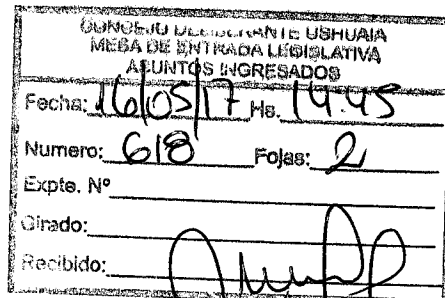 CONCEJO DELIBERANTE USHUAIA
MESA DE ENTRADA LEGISLATIVA
ASUNTOS INGRESADOS
Fecha: 16/05/17 Hs. 14:45
Numero: 618 Fojas: 2
Expte. Nº
Girado:
Recibido: